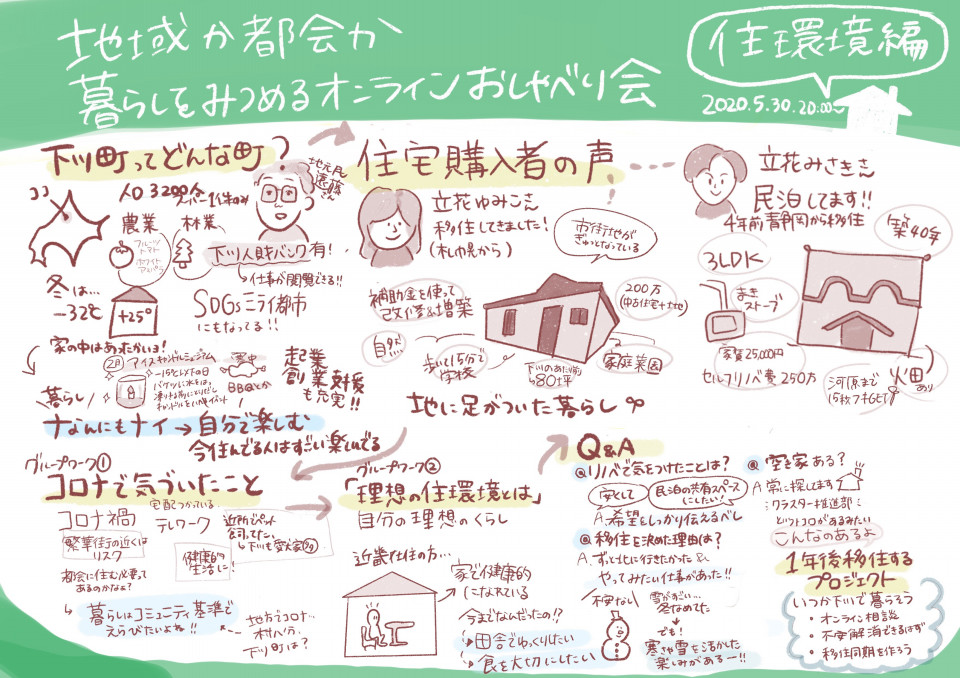 地域か都会か
暮らしをみつめるオンラインおしゃべり会
住環境編
2020.5.30.20:00~
下川町ってどんな町?
ココ
人口3200人
スーパー1件のみ
地元民
遠藤さん
農業
林業
フルーツ
トマト
ホワイト
アスパラ
下川人財バンク有!
仕事が閲覧できる!!
冬は…
-32℃
+25°
家の中はあったかいよ!
SDGs ミライ都市
にもなってる!!
2月
アイスキャンドルミュージアム
-15℃以下の日
バケツに水をはり
真冬
BBQとか
起業
創業支援
も充実!!
暮らし
ナなんにもナイ→自分で楽しむ
今住んでる人はすごい楽しんでる
住宅購入者の声
立花ゆみこさん
移住してきました!
(札幌から)
市街地が
ぎゅっとなっている
補助金を使って
改修&増築
200万
(中古住宅+土地)
自然
歩いて15分で
学校
下川のあたり前
80坪
家庭菜園
地に足がついた暮らし
立花みさきさん
民泊してます!!
4年前静岡から移住
築40年
3LDK
まき
ストーブ
家賃25,000円
セルフリノベ費250万
河原まで
15秒
畑あり
グループワーク①
コロナで気づいたこと
宅配つかっている
コロナ禍
テレワーク
繁華街の近くは
リスク
健康的
生活に!
近所でペット
飼ってたい
下川も愛犬家
都会に住む必要って
あるのかなぁ?
暮らしはコミュニティ基準で
えらびたいよね!!
地方コロナ
村八分
下川町は?
グループワーク②
「理想の住環境とは」
自分の理想のくらし
近畿在住の方…
家で健康的
になれている
今までなんだったの!?
田舎でゆっくりしたい
食を大切にしたい
Q&A
Q リノベで気をつけたことは?
民泊の共有スペース
にしたい!
A.希望をしっかり伝えるべし
Q 移住を決めた理由は?
A.ずっと北に行きたかった&
やってみたい仕事があった!!
不安なし
雪がすごい…
冬なめてた
でも!
寒さや雪を活かした
楽しみがあるー!!
Q 空き家ある?
A 常に探してます
クラスター推進部
どっトコロがあるみたい
こんなのあるよ
1年後移住する
プロジェクト
いつか下川で暮らそう
・オンライン相談
・不安解消できるはず
・移住同期を作ろう